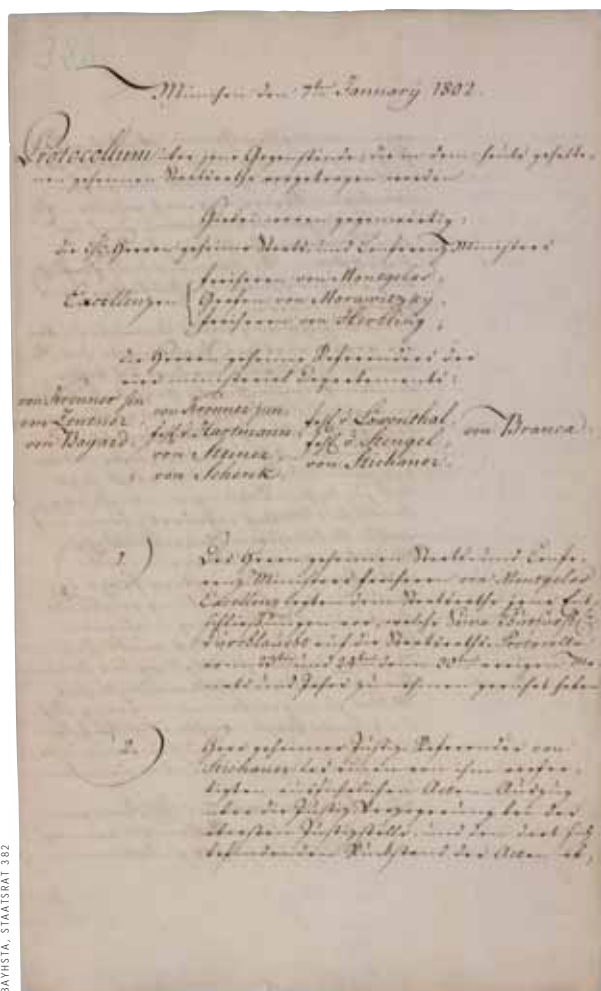 382
München den 7ten January 1802.
Protocollum über jene Gegenstände, die in dem heute gehalte-
nen geheimen Staatsrathe vorgetragen worden
Hiebei waren gegenwärtig,
die Herren geheime Staats- und Conferenz Ministers
Excellenzen
Freiherr von Montgelas,
Grafen von Morawitzky,
Freiherr von Hertling,
die Herren geheime Referendärs der
vier ministerial Departements:
von Krenner sen
von Zentner,
von Bayard.
von Krenner jun.
von Hartmann
von Steiner,
von Schenk.
v. Löwenthal,
v. Stengel,
von Stichaner.
von Branca.
1.)
Des Herrn geheimen Staats- und Confe-
renz Ministers Freiherrn von Montgelas
Excellenz legten dem Staatsrathe jene Ent-
schließungen vor, welche Seine Churfürstliche
Durchlaucht auf die Staatsraths Protocolle
vom und 24ten dann 30ten vorigen Mo-
nats und Jahrs zu nehmen geruhet haben
2.)
Herr geheimer Justiz Referendär von
Stichaner las einen von ihm verfer-
tigten ausführlichen Acten Auszug
über die Justiz Verzögerung bei der
obersten Justizstelle, und den dort sich
befindenden Rückstand der Acten ab,
BAYHSTA, STAATSRAT 382